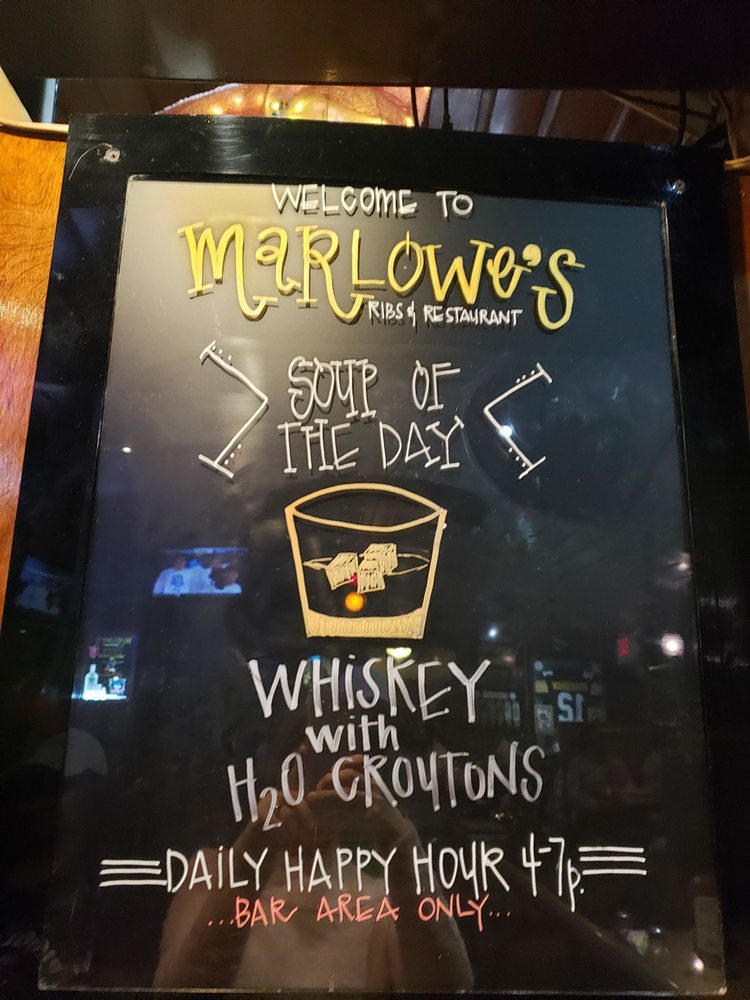 WELCOME TO
MaRLOWe'S
RIBS & RESTAURANT
SOUP OF
THE DAY
WHiSKEY
with
H₂O CROUTONS
DAiLY HAPPY HOUR 4-7p.
...BAR AREA ONLY...